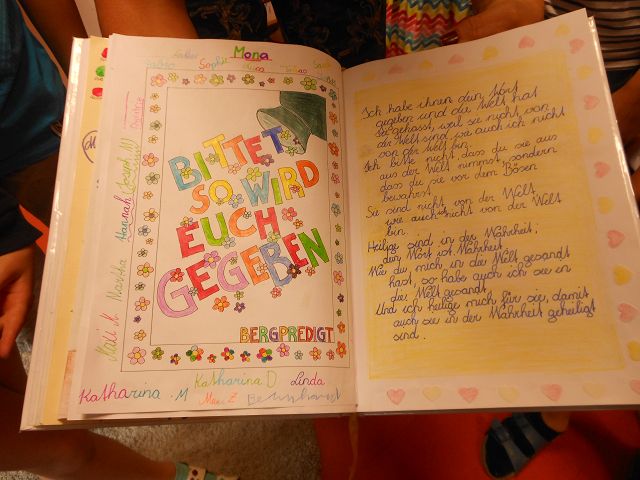 Mona
Sophie
BITTET
SO WIRD
EUCH
GEGEBEN
BERGPREDIGT
Hannah
Martha
Kati K
Katharina D
Linda
Katharina . M
Ich habe ihnen dein Wort
gegeben und die Welt hat
sie gehasst, weil sie nicht von
der Welt sind, wie auch ich nicht
von der Welt bin.
Ich bitte nicht, dass du sie aus
aus der Welt nimmst, sondern
dass du sie vor dem Bösen
bewahrst.
Sie sind nicht von der Welt
wie auch nicht von der Welt
bin.
Heilige sind in der Wahrheit;
dein Wort ist Wahrheit
Wie du mich in die Welt gesandt
hast, so habe auch ich sie in
die Welt gesandt.
Und ich heilige mich für sie, damit
auch sie in der Wahrheit geheiligt
sind.